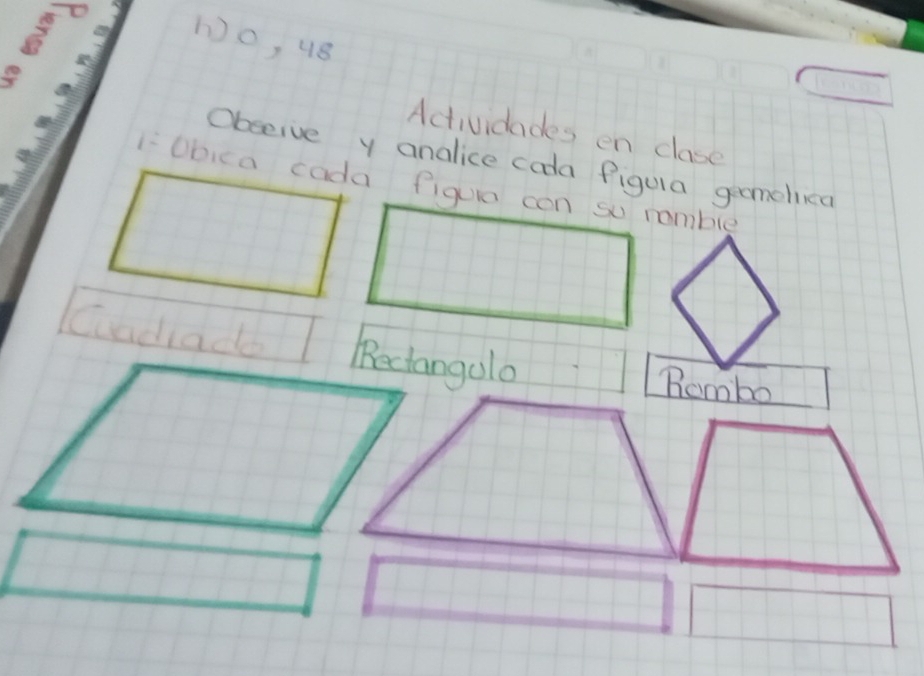 Piensa en
h) 0, 48
Actividades en clase
Observe y analice cada figura geometrica
1- Ubica cada figura con su nombre
Cuadrado
Rectangulo
Rombo